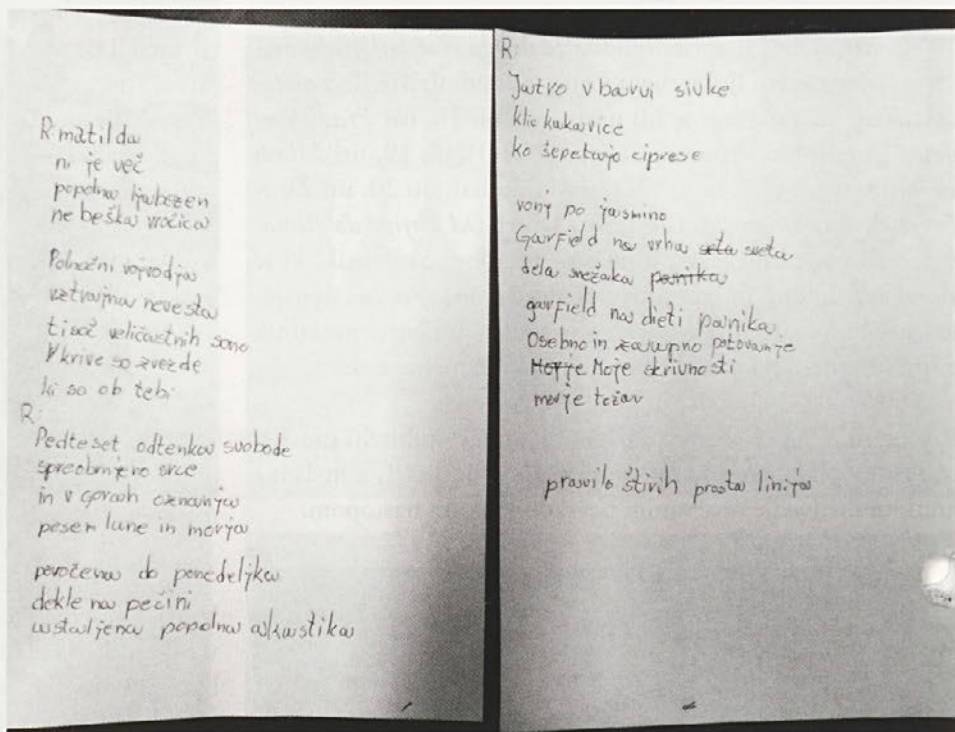 R: matilda
ni je več
popolna ljubezen
ne beška vročica
Polnočni vojvodja
vztrajna nevesta
tisoč veličastnih sono
V krive so zvezde
ki so ob tebi
R:
Pedteset odtenkov svobode
spreobrnjeno srce
in v gorah oznanja
pesem lune in morja
poročena do ponedeljka
dekle na pečini
ustaljena popolna akustika
R:
Jutro v barvi sivke
klic kukavice
ko šepetajo ciprese
vonj po jasmino
Garfield na vrhu seta sveta
dela snežaka panika
garfield na dieti panika
Osebno in zaupno potovanje
Morje Moje skrivnosti
morje težav
pravilo štirih prosta linija